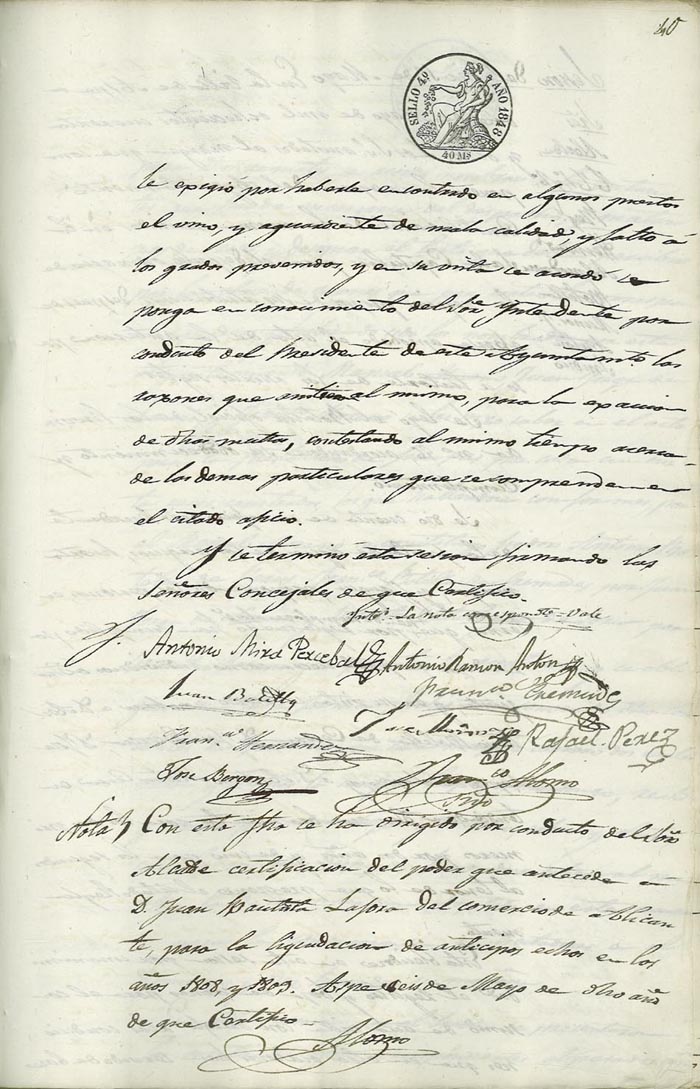 40
SELLO 4º AÑO 1848
40 Ms
le exigió por haberle encontrado en algunos puestos
el vino, y aguardiente de mala calidad, y falto á
los grados prevenidos, y en su vista se acordó se
ponga en conocimiento del Sor. Yntendente por
conducto del Presidente de este Ayuntamto. las
razones que al mismo, para la exaccion
de dhas multas, contestando al mismo tiempo acerca
de los demas particulares que se comprenden en
el citado oficio.
Y se terminó esta sesion firmando los
Señores Concejales de que Certifico.
La nota Vale
Antonio Mira Percebal Antonio Ramon Anton
Juan
Franco. Hernandez Rafael Perez
Jose Juan Alonso
Srio
Nota Con esta fha se ha dirigido por conducto del Sor.
Alcalde certificacion del poder que antecede á
D. Juan Bautista Lafora del comercio de Alican
te, para la liquidacion de anticipos echos en los
años 1808, y 1809. Aspe seis de Mayo de dho año
de que Certifico
Alonso